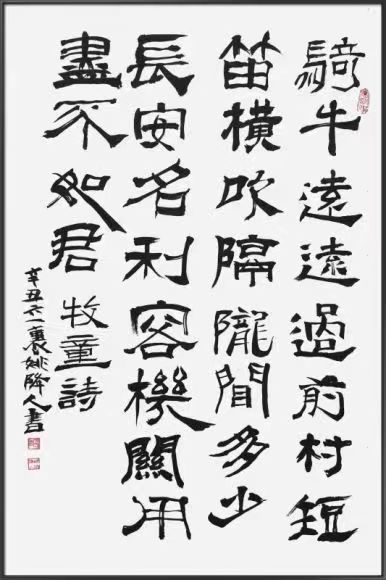 騎牛遠遠過前村短
笛橫吹隔隴聞多少
長安名利客機關用
盡不如君 牧童詩
辛丑六一襄姚降人書